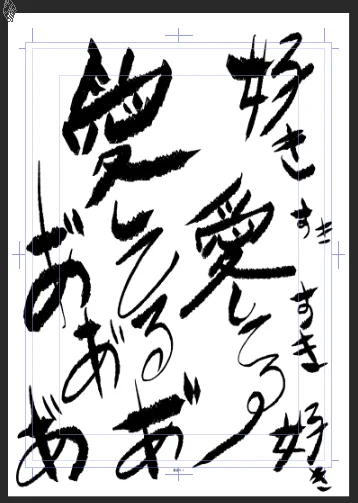 好き
すき
すき
好き
愛してる
愛してる
あ゙
あ゙
あ゙
あ゙